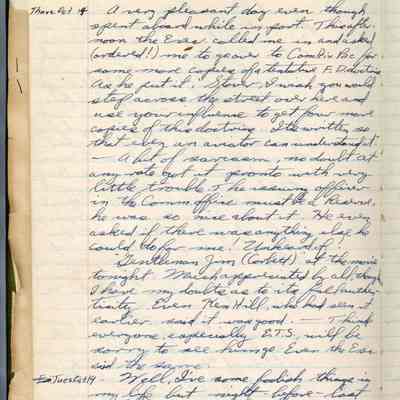 Thurs Oct 14 A very pleasant day even though
spent aboard while in port. This after
noon the Exec. called me in and asked
(ordered!) me to go over to ComAirPac for
some more copies of a tentative F. D. doctrine
As he put it, "Stover, I wish you would
step across the street over here and
use your influence to get four more
copies of this doctrine. It's written so
that even an aviator can understand it"
— A bit of sarcasm, no doubt at
any rate got it pronto with very
little trouble & the issuing officer
in the Comm office must be a Reserve,
he was so nice about it. He even
asked if there was anything else he
could do for me! Unheard of!
"Gentleman Jim (Corbett)" at the movie
tonight. Was appreciated by all though
I have my doubts as to its authen-
ticity. Even Ken Hill, who had seen it
earlier said it was good. — Think
everyone, especially E.T.S., will be
sorry to see him go. Even the Exec
said the same.
Tues Oct 19 - Well, I've some foolish things in
my life but night before last